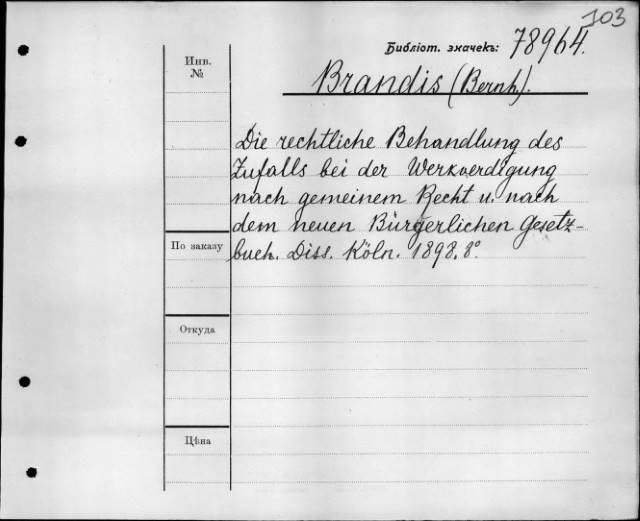 103
Библіот. значекъ: 78964.
Инв.
№
Brandis (Bernh.).
Die rechtliche Behandlung des
Zufalls bei der Werkverdigung
nach gemeinem Recht u. nach
dem neuen Bürgerlichen Gesetz-
buch. Diss. Köln. 1898. 8°.
По заказу
Откуда
Цѣна